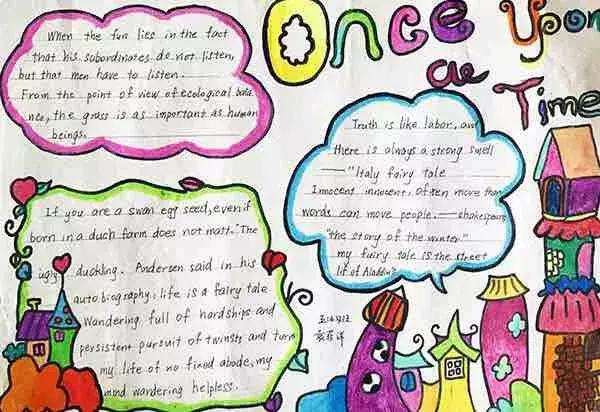 Once Upon
a
Time
When the fun lies in the fact
that his subordinates do not listen,
but that men have to listen.
From the point of view of ecological bala
nce, the grass is as important as human
beings.
Truth is like labor, an
there is always a strong smell
—"Italy fairy tale
Innocent innocent, often more than
words can move people.——shakespeare
"the story of the winter"
my fairy tale is the street
lit of Aladdin"
If you are a swan egg seed, even if
born in a duch farm does not matt. "The
ugly duckling. Andersen said in his
autobiography: life is a fairy tale
Wandering full of hardships and
persistent pursuit of twinsty and turn
my life of no fixed abode, my
mind wandering helpless.